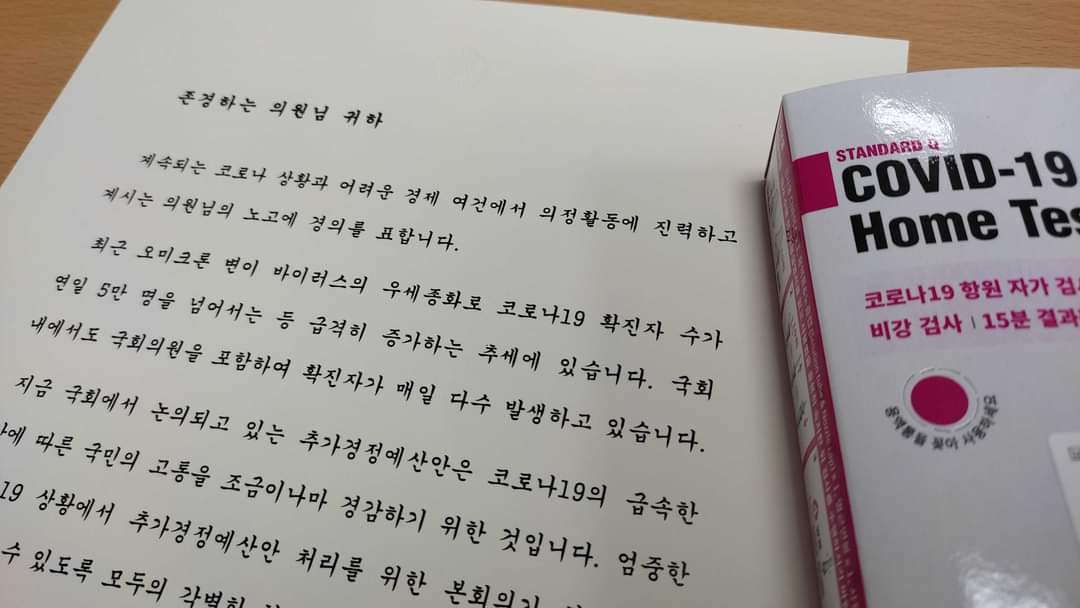 존경하는 의원님 귀하
계속되는 코로나 상황과 어려운 경제 여건에서 의정활동에 진력하고
계시는 의원님의 노고에 경의를 표합니다.
최근 오미크론 변이 바이러스의 우세종화로 코로나19 확진자 수가
연일 5만 명을 넘어서는 등 급격히 증가하는 추세에 있습니다. 국회
내에서도 국회의원을 포함하여 확진자가 매일 다수 발생하고 있습니다.
지금 국회에서 논의되고 있는 추가경정예산안은 코로나19의 급속한
따른 국민의 고통을 조금이나마 경감하기 위한 것입니다. 엄중한
19 상황에서 추가경정예산안 처리를 위한
수 있도록 모두의 각별히
STANDARD Q
COVID-19
Home
코로나19 항원 자가
비강 검사 | 15분